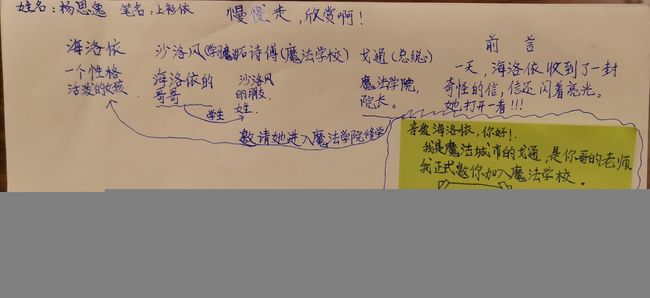 姓名:杨思逸 笔名:上杨依 慢慢走,欣赏啊!
海洛依 沙洛风(学魔 石诗傅(魔法学校) 戈通(总统) 前言
一个性格活泼的女孩.
海洛依的哥哥
学生
沙洛风的朋友,女性.
魔法学院,院长。
邀请她进入魔法学院修学
一天,海洛依收到了一封
奇怪的信,信还闪着亮光。
她打开一看!!!
亲爱海洛依,你好!.
我是魔法城市的戈通,是你哥的老师
我正式邀你加入魔法学校。